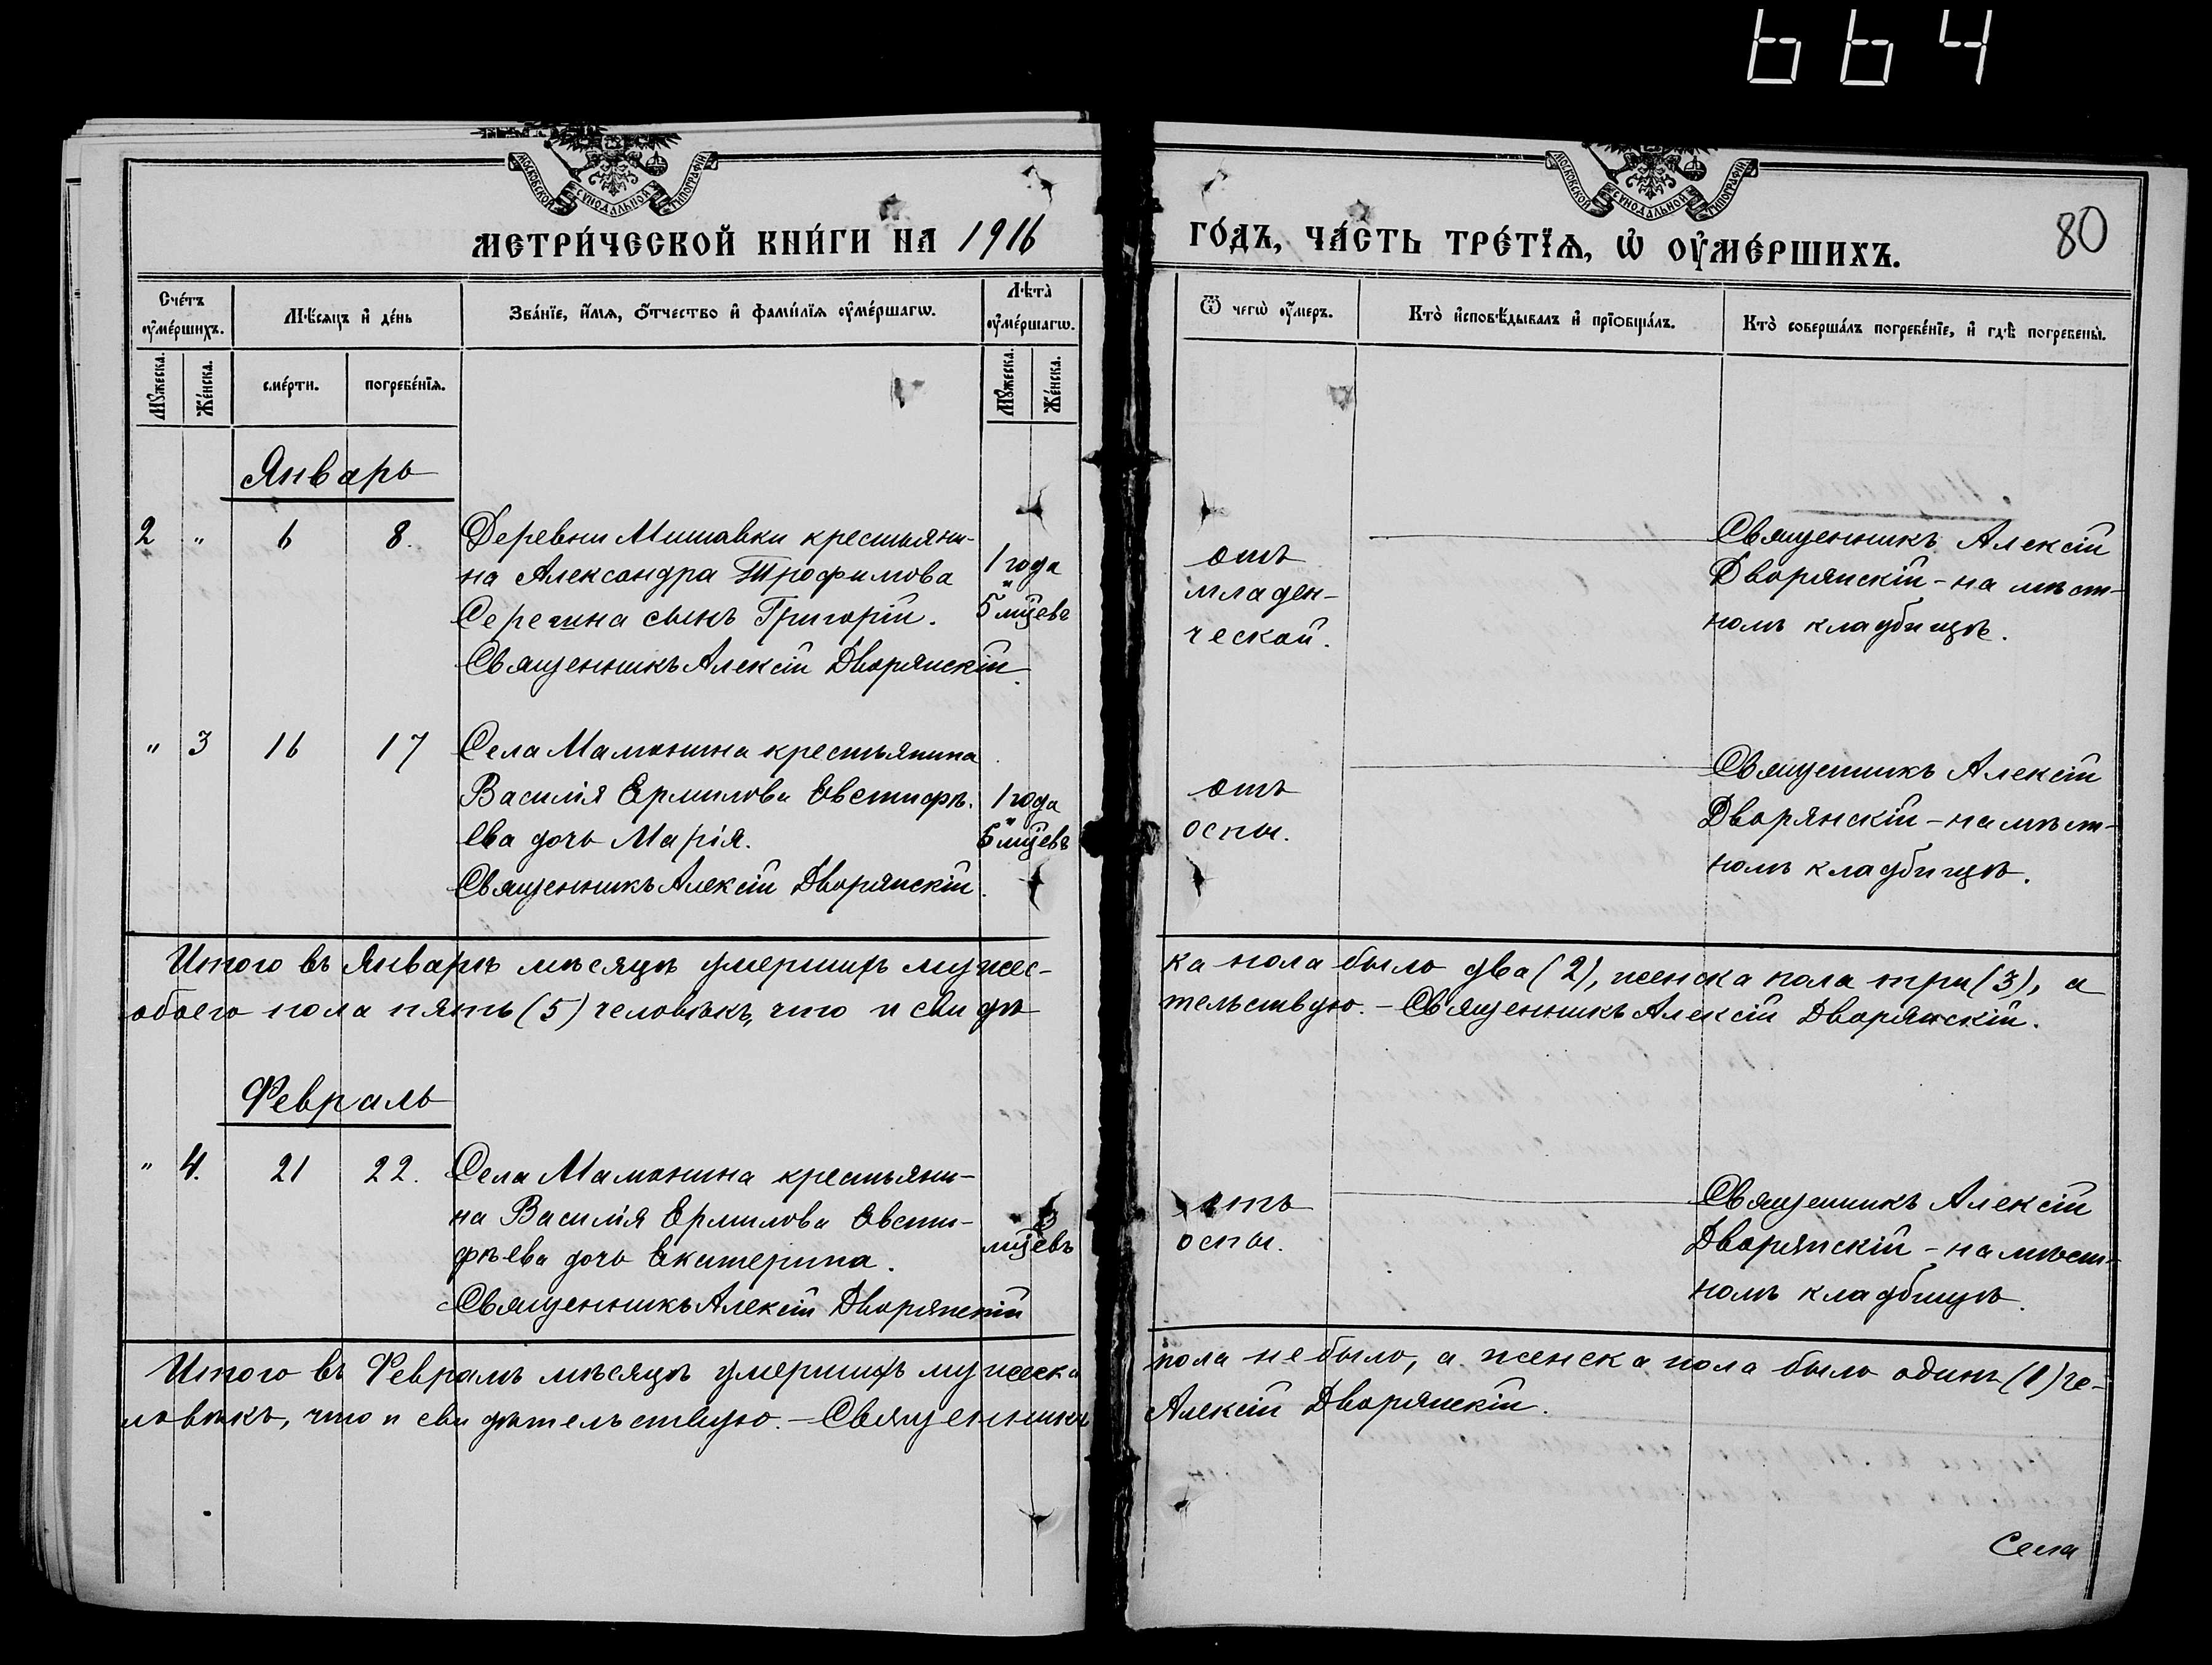 664
МОСКОВСКОЙ СѴНОДАЛЬНОЙ ТИПОГРАФІИ
МОСКОВСКОЙ СѴНОДАЛЬНОЙ ТИПОГРАФІИ
МЕТРИ́ЧЕСКОЙ КНИ́ГИ НА 1916
ГО́ДЪ, ЧА́СТЬ ТРЕ́ТЇѦ, Ѡ҆ ОУ҆МЕ́РШИХЪ.
80
Сче́тъ оу҆ме́ршихъ.
Мѣ́сяцъ и҆ де́нь
Зва́нїе, и҆́мя, ѻ҆́тчество и҆ фами́лїя оу҆ме́ршагѡ.
Лѣ́та̀ оу҆ме́ршагѡ.
Ѿ чегѡ̀ оу҆́меръ.
Кто̀ и҆сповѣ́дывалъ и҆ прїѡбща́лъ.
Кто̀ соверша́лъ погребе́нїе, и҆ гдѣ̀ погребены̀.
Мꙋ́жеска.
Же́нска.
сме́рти.
погребе́нїя.
Мꙋ́жеска.
Же́нска.
Январь
2 " 6 8. Деревни Мишавки крестьяни-
на Александра Трофимова
Серегина сынъ Григорій.
Священникъ Алексій Дворянскій.
1 года
и
5 мцевъ
отъ
младен-
ческой.
Священникъ Алексій
Дворянскій - на мѣст-
номъ кладбищѣ.
" 3 16 17 Села Мамонина крестьянина
Василія Ермилова Евстифѣ-
ева дочь Марія.
Священникъ Алексій Дворянскій.
1 года
и
5 мцевъ
отъ
оспы.
Священникъ Алексій
Дворянскій - на мѣст-
номъ кладбищѣ.
Итого въ Январѣ мѣсяцѣ умершихъ мужес-
ка пола было два (2), женска пола три (3), а
обоего пола пять (5) человѣкъ, что и свидѣ
тельствую. - Священникъ Алексій Дворянскій.
Февраль
" 4. 21 22. Села Мамонина крестьяни-
на Василія Ермилова Евсти-
фѣева дочь Екатерина.
Священникъ Алексій Дворянскій
мцевъ
отъ
оспы.
Священникъ Алексій
Дворянскій - на мѣст-
номъ кладбищѣ.
Итого въ Февралѣ мѣсяцѣ умершихъ мужеска
пола не было, а женска пола было одинъ (1) че-
ловѣкъ, что и свидѣтельствую. - Священникъ
Алексій Дворянскій.
Села